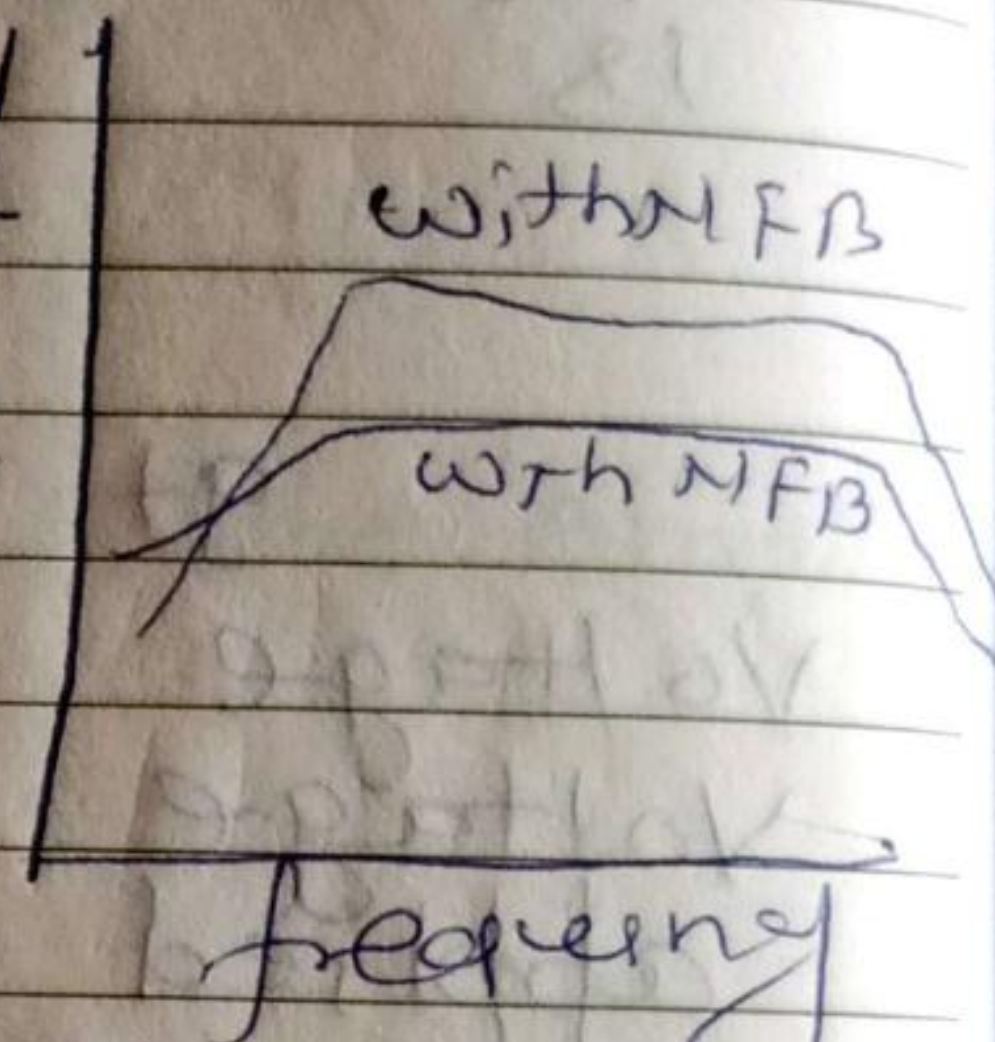 withNFB
with NFB
frequency